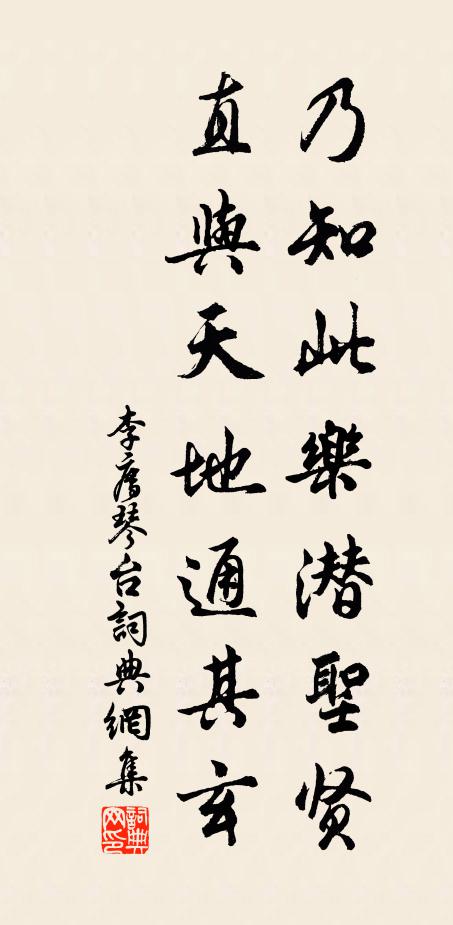 乃知此樂潜聖贤
直與天地通其玄
李𢈪琴台詞典網集
詞典网印